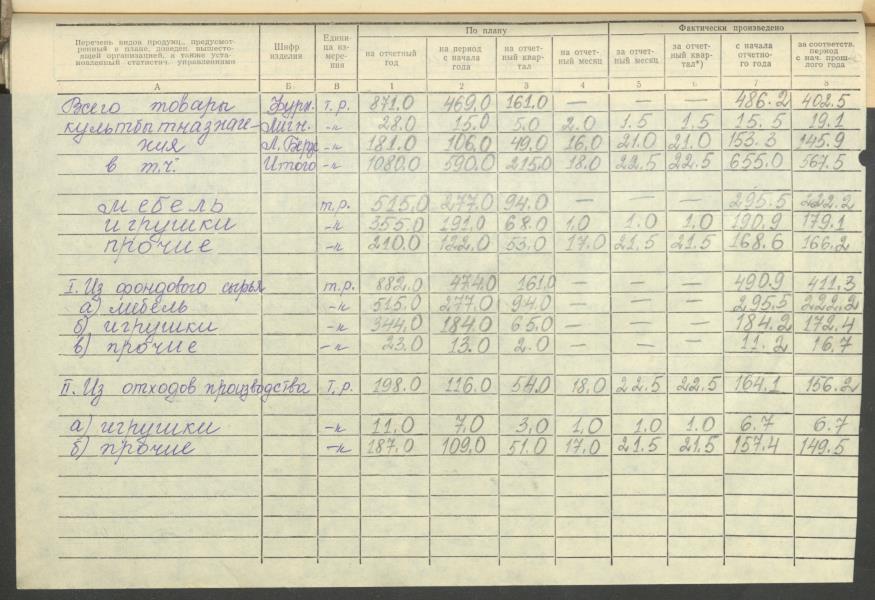 По плану Фактически произведено
Перечень видов продукц., предусмотренный в плане, доведен. вышестоящей организацией, а также установленный статистич. управлениями Шифр изделия Едини-ца из-мере-ния на отчетный год на период с начала года на отчет-ный квар-тал на отчет-ный месяц за отчет-ный месяц за отчет-ный квар-тал*) с начала отчетно-го года за соответств. период с нач. прош-лого года
А Б В 1 2 3 4 5 6 7 8
Всего товары Фурн. т.р. 871.0 469.0 161.0 — — — 486.2 402.5
культбытназначе- Лигн. -"- 28.0 15.0 5.0 2.0 1.5 1.5 15.5 19.1
ния -"- 181.0 106.0 49.0 16.0 21.0 21.0 153.3 145.9
в т.ч. Итого -"- 1080.0 590.0 215.0 18.0 22.5 22.5 655.0 567.5
мебель т.р. 515.0 277.0 94.0 — — — 295.5 222.2
игрушки -"- 355.0 191.0 68.0 1.0 1.0 1.0 190.9 179.1
прочие -"- 210.0 122.0 53.0 17.0 21.5 21.5 168.6 166.2
I. Из фондового сырья т.р. 882.0 474.0 161.0 — — — 490.9 411.3
а) мебель -"- 515.0 277.0 94.0 — — — 295.5 222.2
б) игрушки -"- 344.0 184.0 65.0 — — — 184.2 172.4
в) прочие -"- 23.0 13.0 2.0 — — — 11.2 16.7
II. Из отходов производства т.р. 198.0 116.0 54.0 18.0 22.5 22.5 164.1 156.2
а) игрушки -"- 11.0 7.0 3.0 1.0 1.0 1.0 6.7 6.7
б) прочие -"- 187.0 109.0 51.0 17.0 21.5 21.5 157.4 149.5